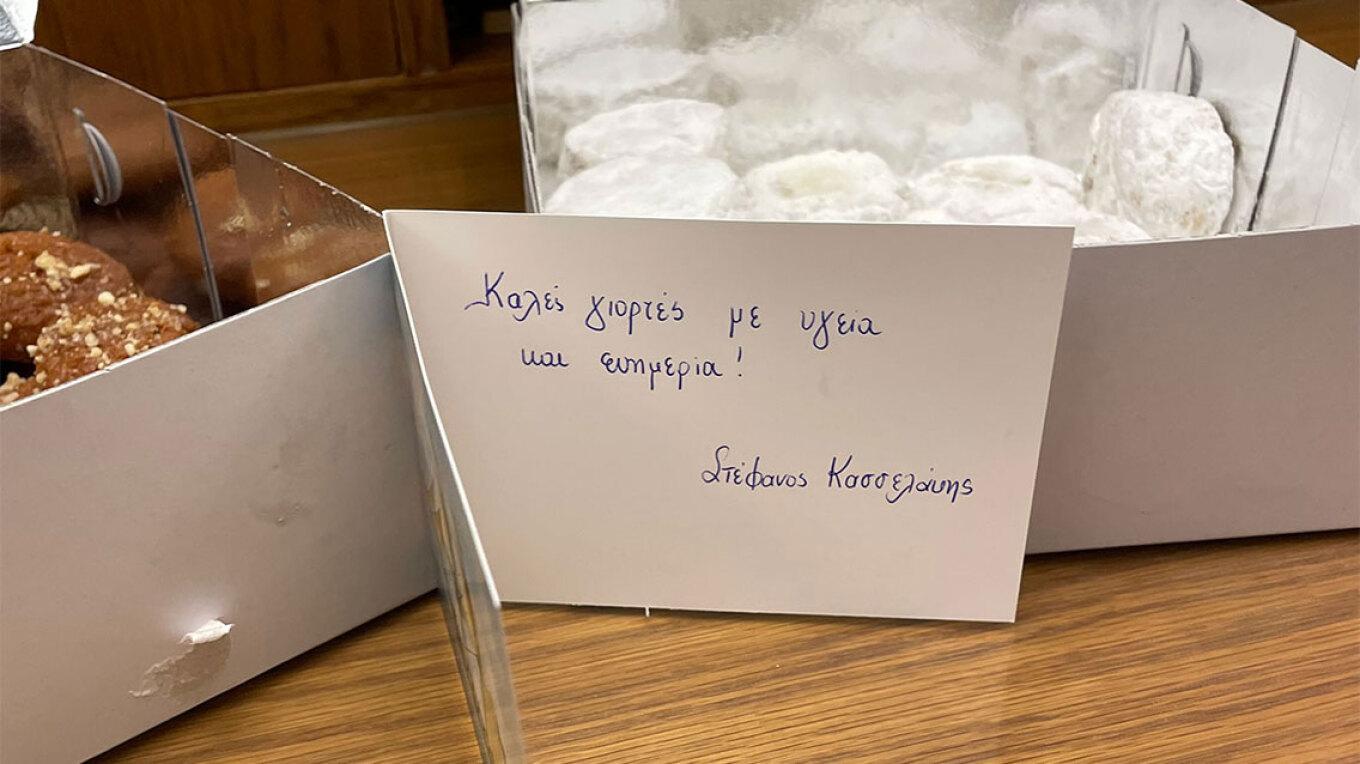 Καλές γιορτές με υγεία
και ευημερία!
Στέφανος Κασσελάκης